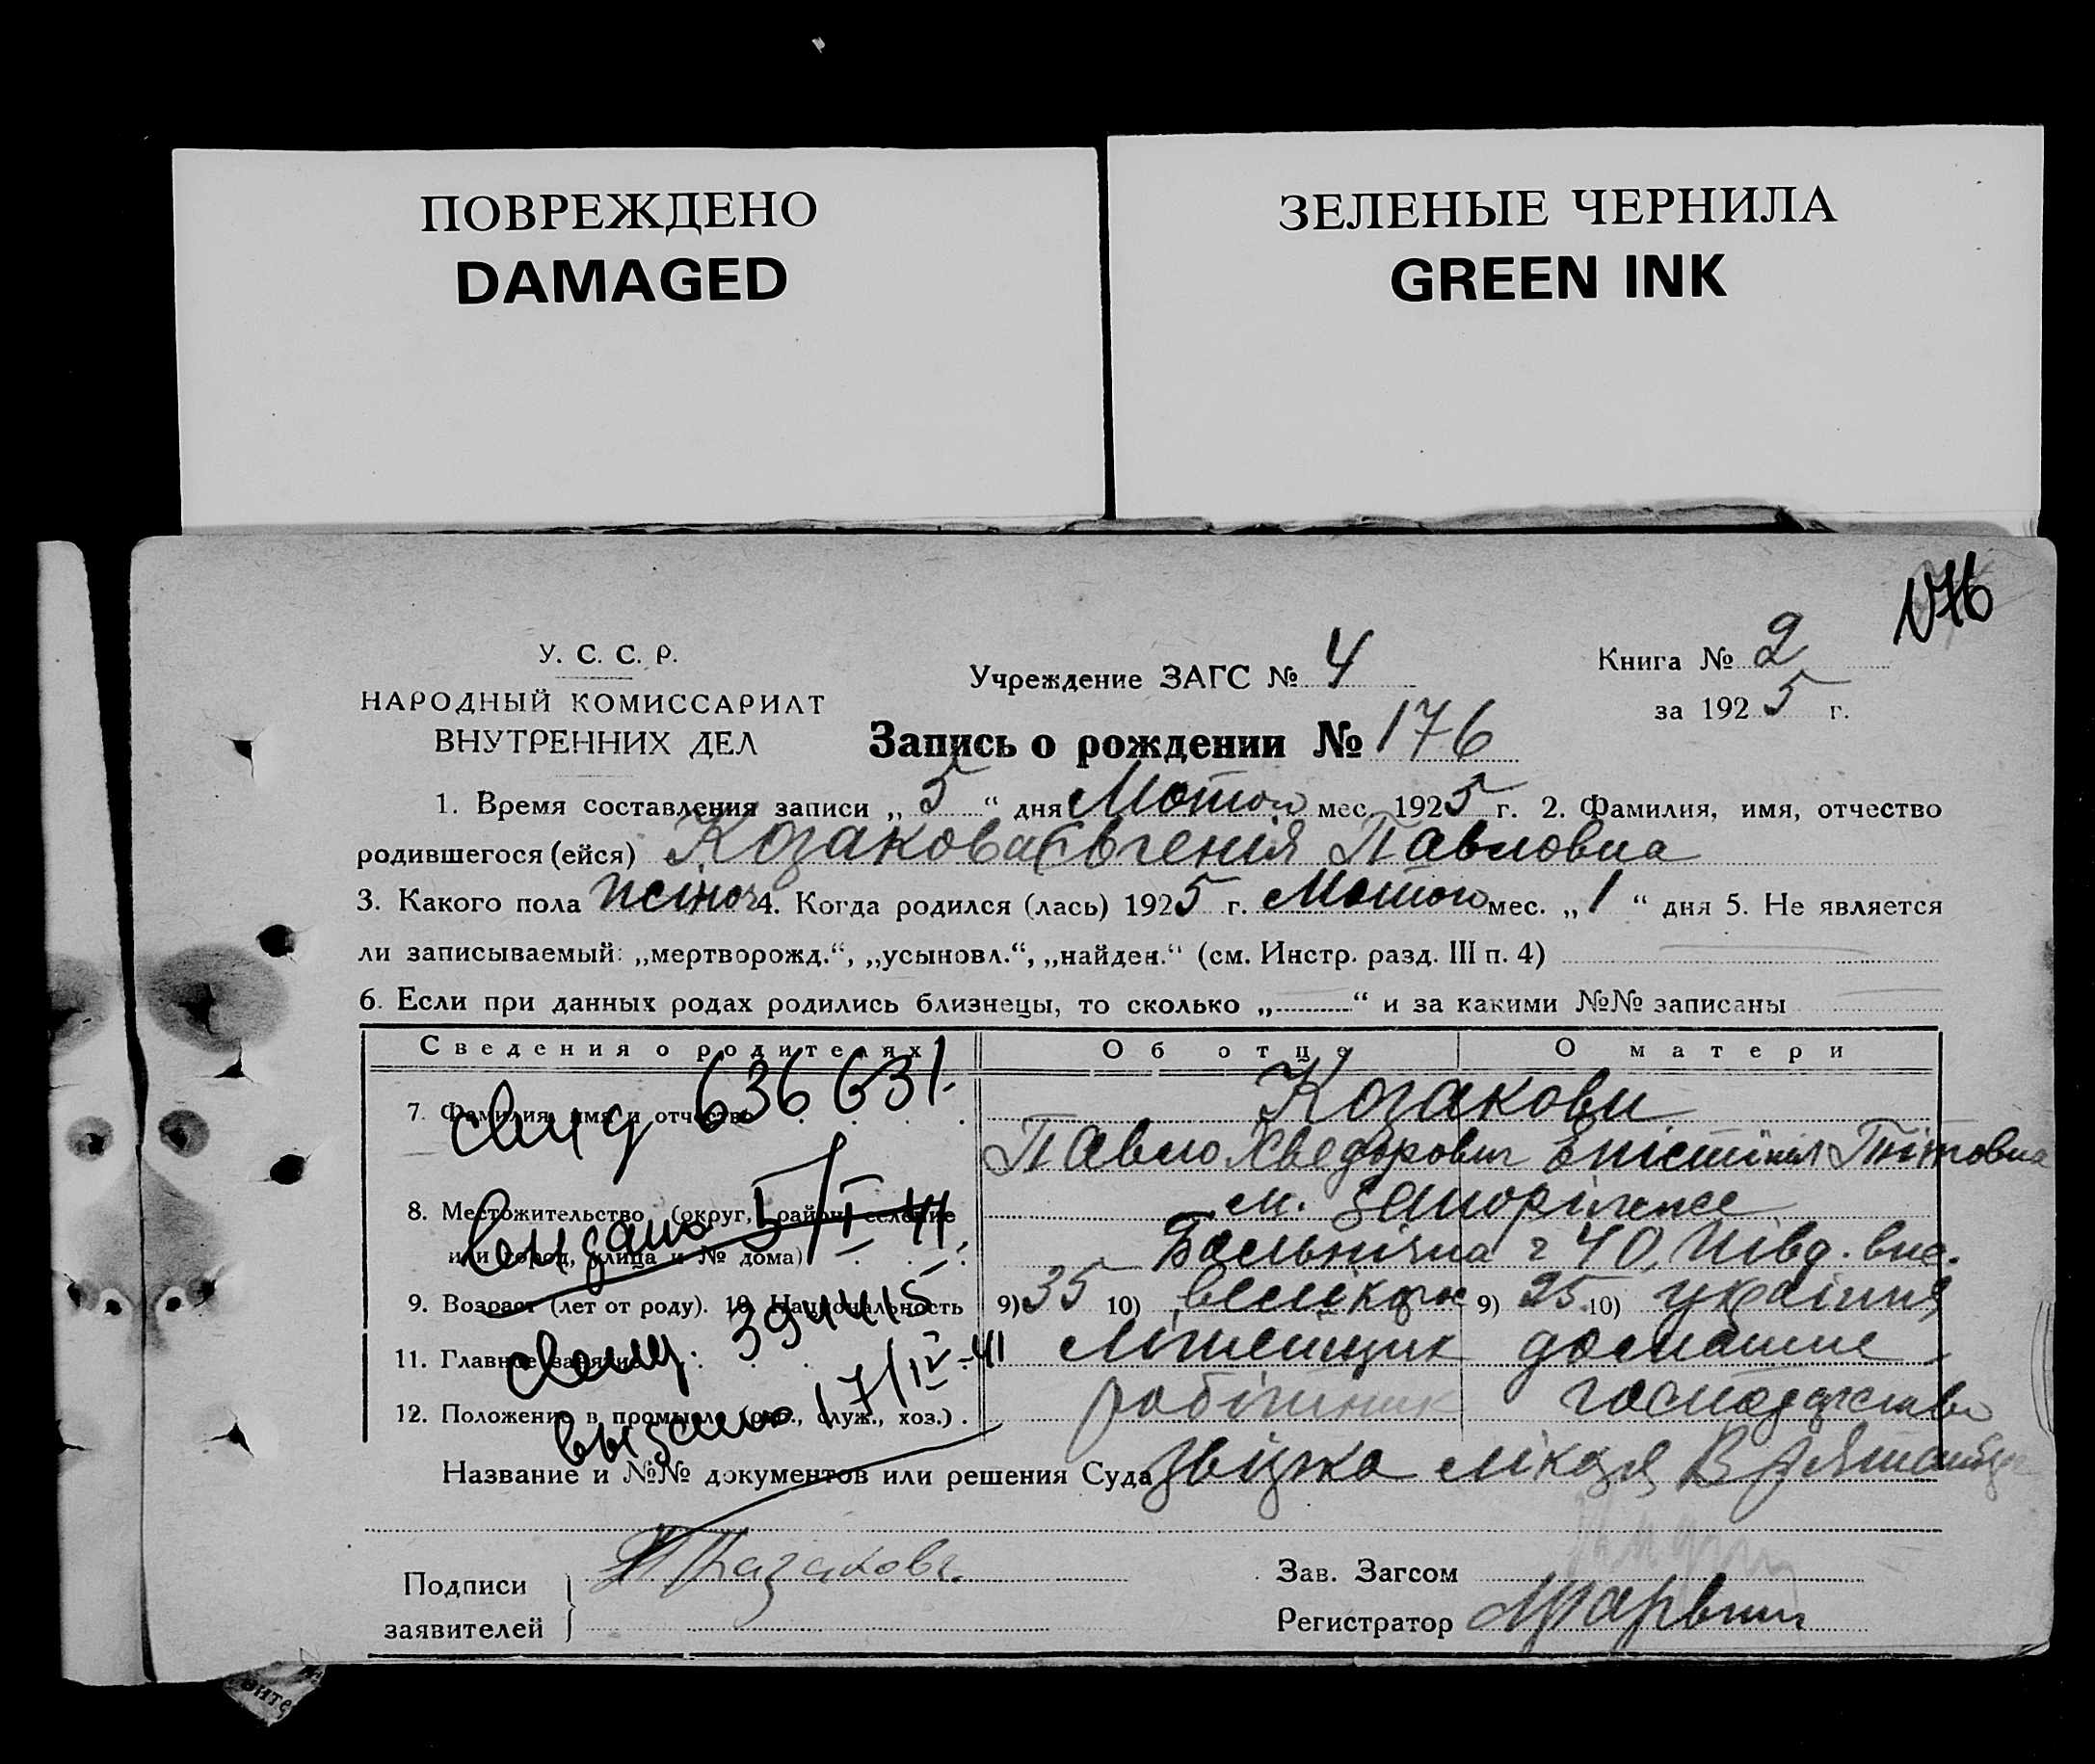 ПОВРЕЖДЕНО
DAMAGED
ЗЕЛЕНЫЕ ЧЕРНИЛА
GREEN INK
176
У. С. С. Р.
НАРОДНЫЙ КОМИССАРИАТ
ВНУТРЕННИХ ДЕЛ
Учреждение ЗАГС № 4
Книга № 2
за 1925 г.
Запись о рождении № 176
1. Время составления записи „ 5 “ дня Мотого мес. 1925 г. 2. Фамилия, имя, отчество
родившегося (ейся) Козакова Євгенія Павловна
3. Какого пола жіноч 4. Когда родился (лась) 1925 г. Мотого мес. „ 1 “ дня 5. Не является
ли записываемый: „мертворожд.“, „усыновл.“, „найден.“ (см. Инстр. разд. III п. 4)
6. Если при данных родах родились близнецы, то сколько „ “ и за какими №№ записаны
Сведения о родителях Об отце О матери
свид 636631.
7. Фамилия, имя и отчество Козакови
Павло Хведорович Епістінія Тітовна
8. Местожительство (округ, район, селение м. Запоріжже
выдано 5/I 41
или город, улица и № дома) Больнічна 40, Півд.
9. Возраст (лет от роду). 10. Национальность 9) 35 10) велікорос 9) 25 10) україн
свид. 394415
11. Главное занятие домашнє
выдано 17/IV-41
12. Положение в промысле (раб., служ., хоз.) робітник господарство
Название и №№ документов или решения Суда звістка лікаря
Подписи
заявителей
П Казаков
Зав. Загсом
Регистратор